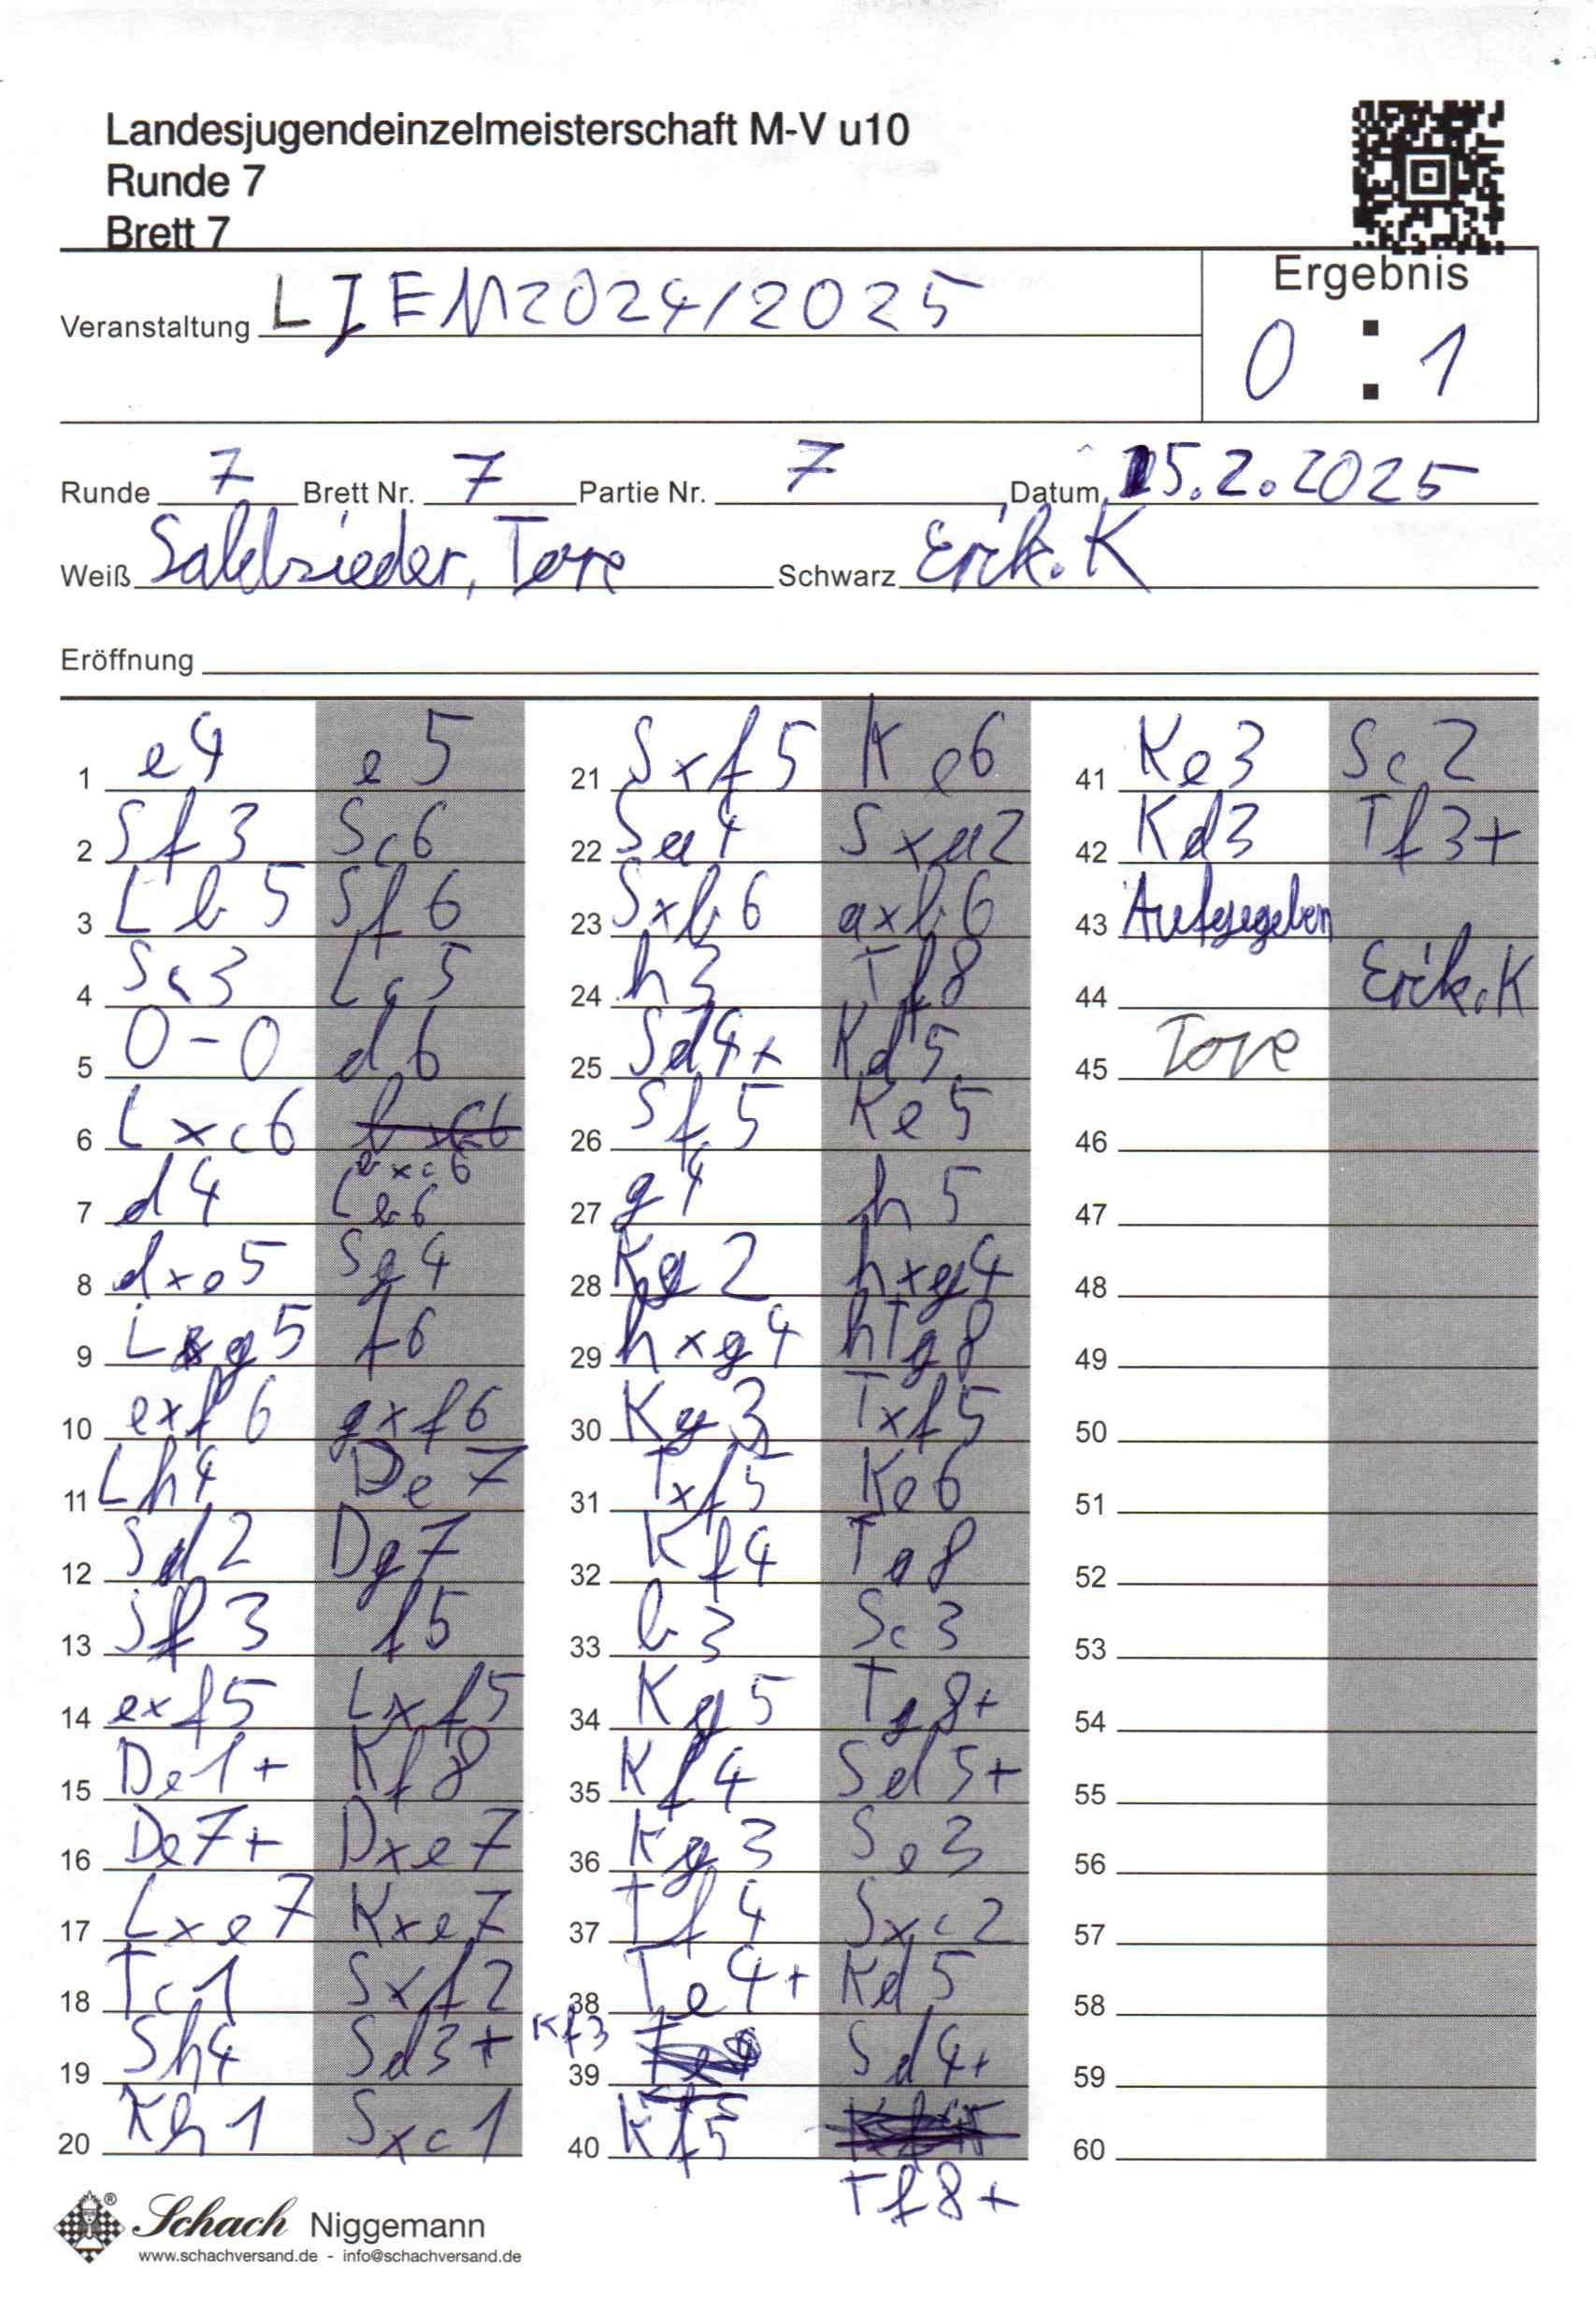 Landesjugendeinzelmeisterschaft M-V u10
Runde 7
Brett 7
Veranstaltung LJEM2024/2025
Ergebnis
0 : 1
Runde 7 Brett Nr. 7 Partie Nr. 7 Datum 15.2.2025
Weiß Tore Schwarz Erik.K
Eröffnung
1 e4 e5
2 Sf3 Sc6
3 Lb5 Sf6
4 Sc3 Lc5
5 0-0 d6
6 Lxc6 bxc6
7 d4 Lb6
8 dxe5 Sg4
9 Lg5 f6
10 exf6 gxf6
11 Lh4 De7
12 Sd2 Dg7
13 Sf3 f5
14 exf5 Lxf5
15 De1+ Kf8
16 De7+ Dxe7
17 Lxe7 Kxe7
18 Tc1 Sxf2
19 Sh4 Sd3+
20 Kh1 Sxc1
21 Sxf5 Ke6
22 Sa4 Sxa2
23 Sxb6 axb6
24 h3 Tf8
25 Sd4+ Kd5
26 Sf5 Ke5
27 g4 h5
28 Kg2 hxg4
29 hxg4 hTg8
30 Kg3 Txf5
31 Txf5 Ke6
32 Kf4 Ta8
33 b3 Sc3
34 Kg5 Tg8+
35 Kf4 Sd5+
36 Kg3 Se3
37 Tf4 Sxc2
38 Te4+ Kd5
39 Kf3 Sd4+
40 Kf5 Tf8+
41 Ke3 Sc2
42 Kd3 Tf3+
43 Aufgegeben
44 Erik.K
45 Tore
46
47
48
49
50
51
52
53
54
55
56
57
58
59
60
Schach Niggemann
www.schachversand.de - info@schachversand.de